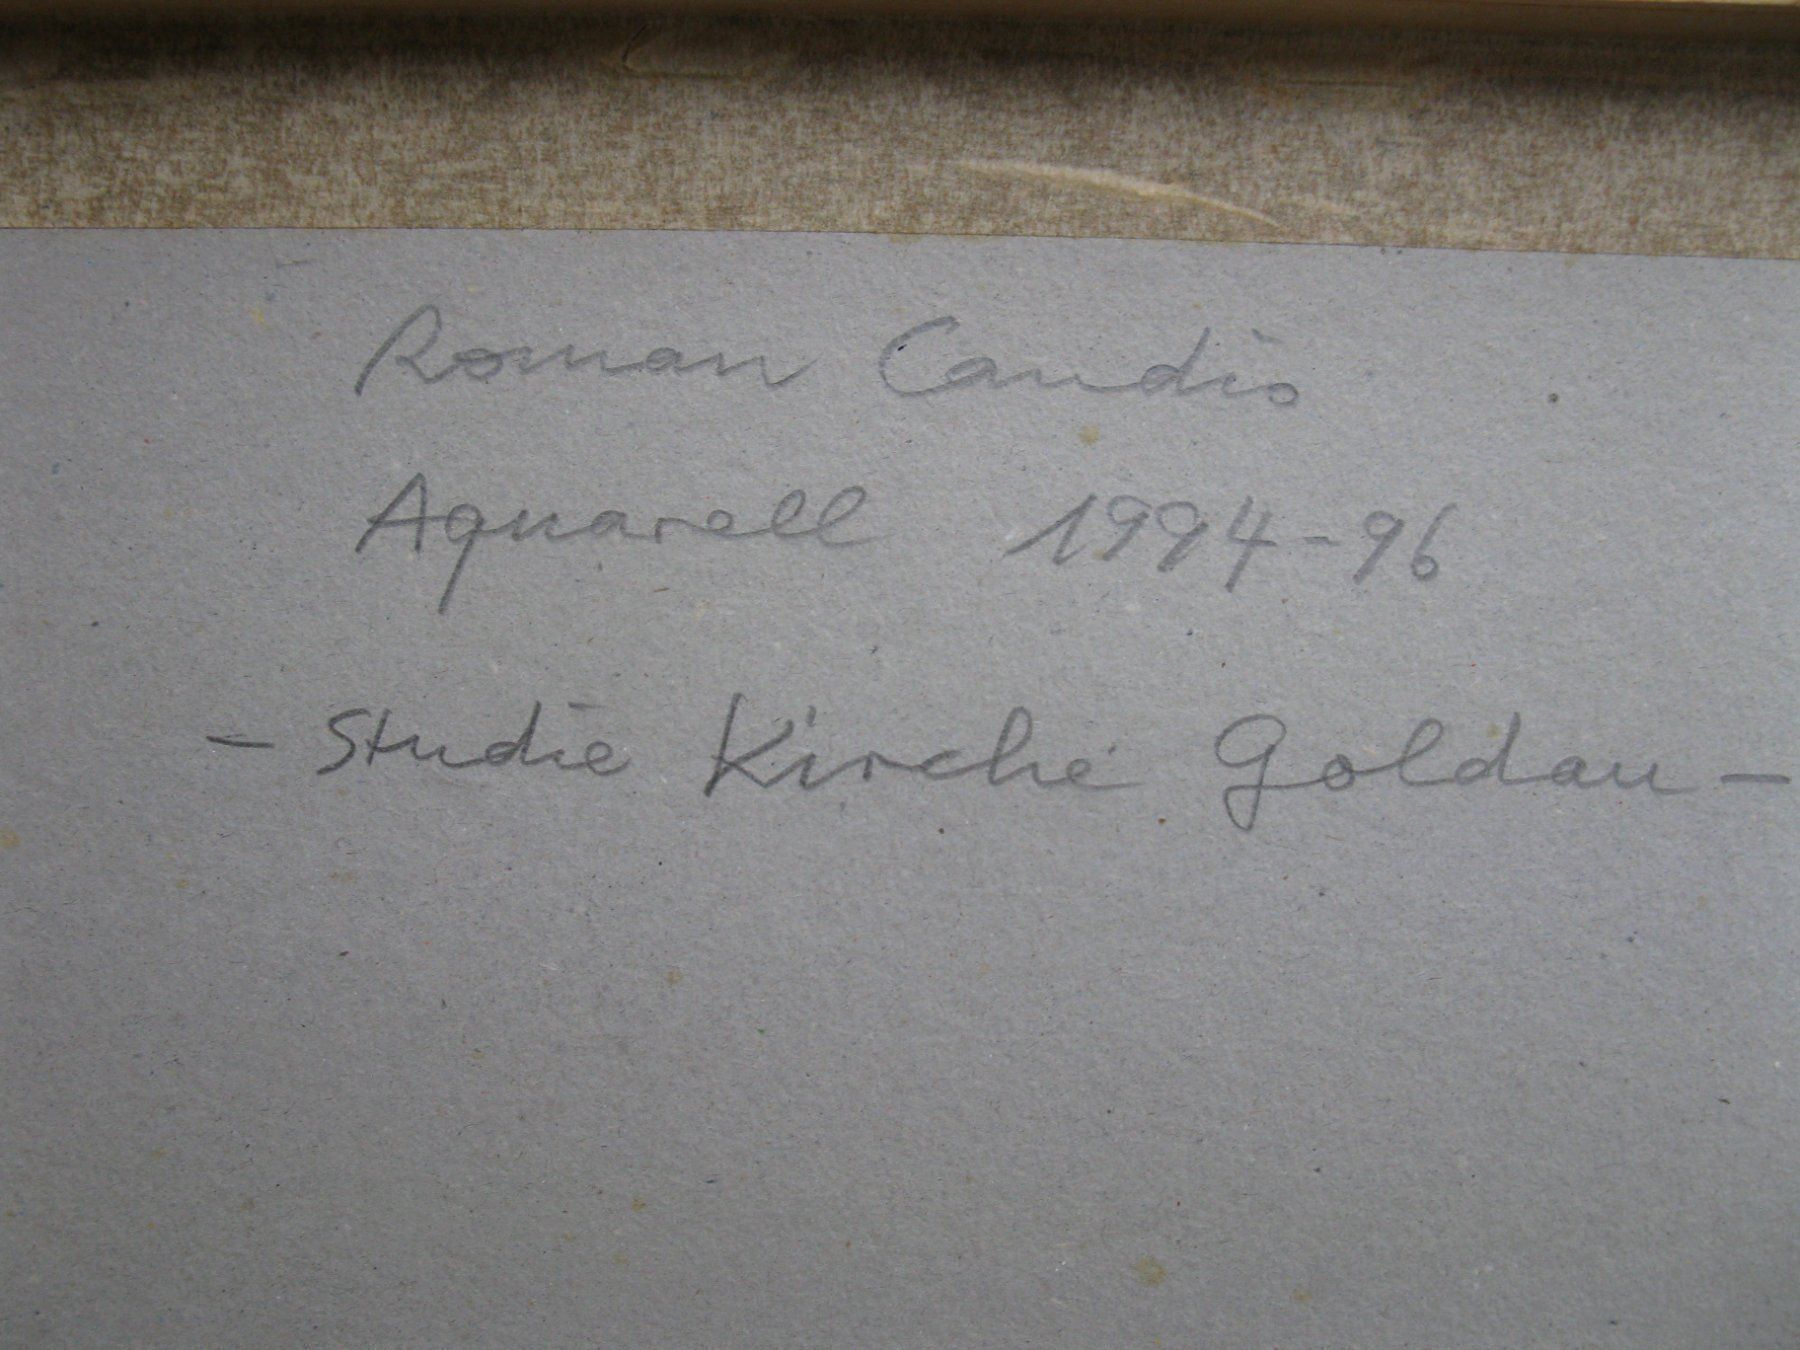 Roman Candio
Aquarell 1994-96
- Studie Kirche Goldau -